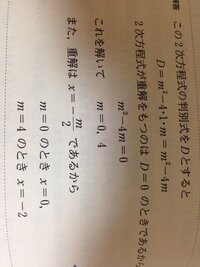 解答
この2次方程式の判別式をDとすると
D=m²-4・1・m=m²-4m
2次方程式が重解をもつのはD=0のときであるから
m²-4m=0
これを解いて
m=0, 4
また，重解は x=-m/2 であるから
m=0 のとき x=0,
m=4 のとき x=-2